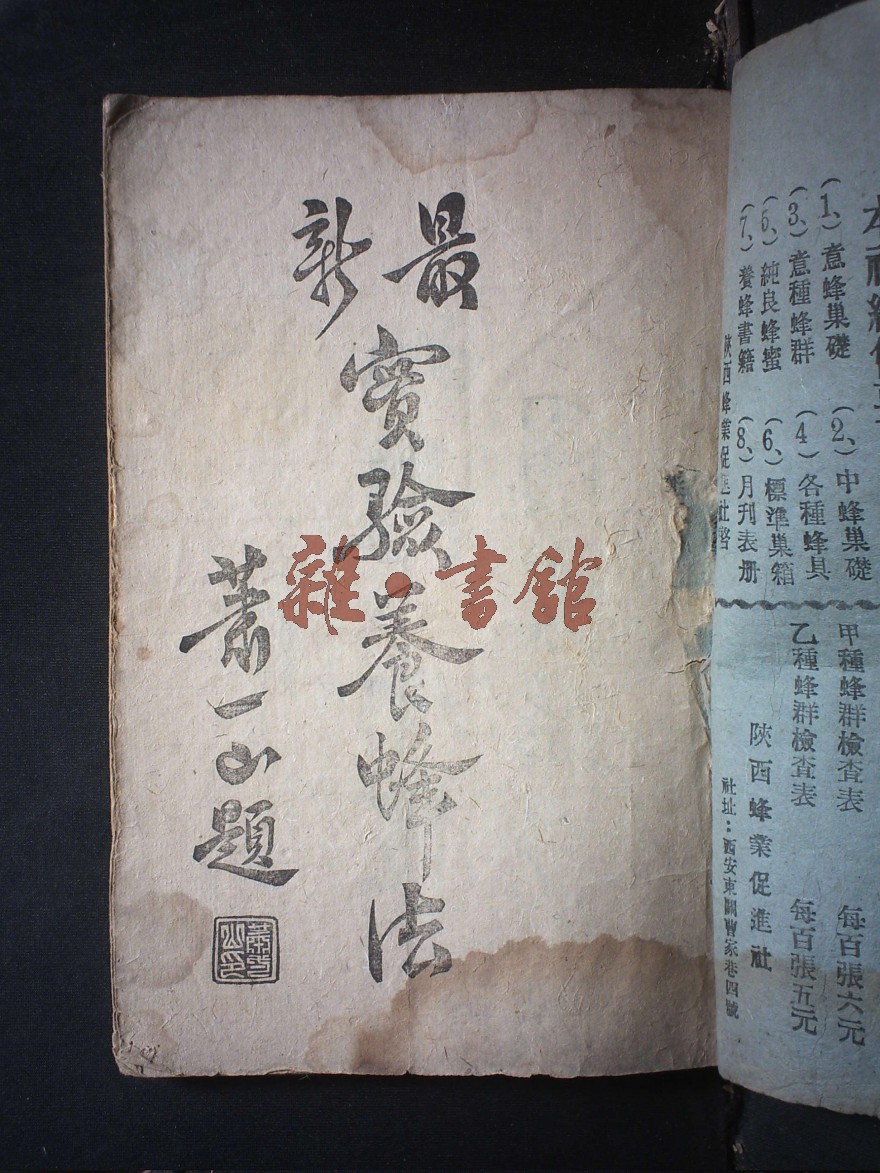 最新
實驗養蜂法
蕭一山題
蕭一山印
雜·書館
(1、)意蜂巢礎 (2、)中蜂巢礎
(3、)意種蜂群 (4、)各種蜂具
(5、)純良蜂蜜 (6、)標準巢箱
(7、)養蜂書籍 (8、)月刊表册
陝西蜂業促進社啓
甲種蜂群檢查表 每百張六元
乙種蜂群檢查表 每百張五元
陝西蜂業促進社
社址：西安東關曹家巷四號